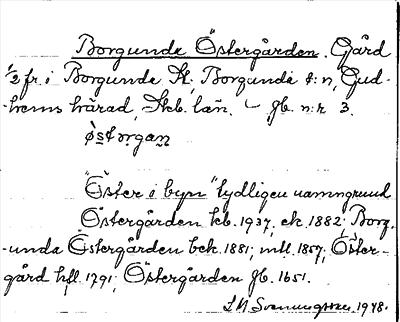 Borgunda Östergården. Gård
1/2 fr. i Borgunda Kl, Borgunda s:n, Gud-
hems härad, Skb. län. – gb. n:r 3.
östorgan
"Öster i byn" tydligen namngrund
Östergården kb. 1937, ek. 1882; Borg-
unda Östergården bek. 1881; mtl. 1857, Öster-
gård hfl. 1791; Östergården gb. 1651.
1948.